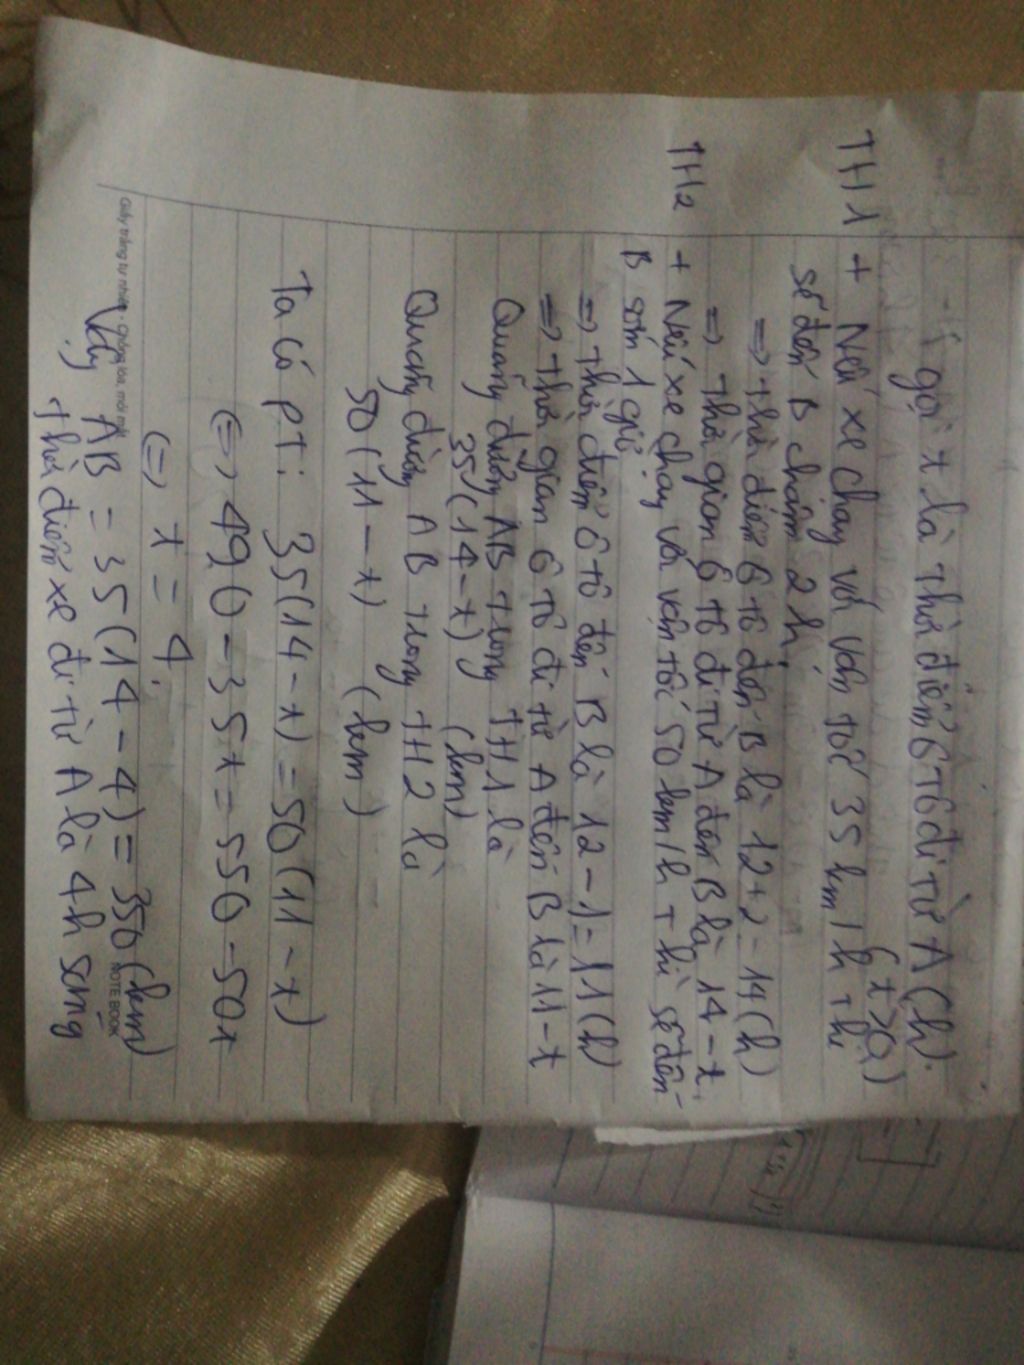 - gọi x là thời điểm ô tô đi từ A (h).
(x > 0)
TH1 + Nếu xe chạy với vận tốc 35 km/h thì
sẽ đến B chậm 2 h.
=> thời điểm ô tô đến B là 12 + 2 = 14 (h)
=> thời gian ô tô đi từ A đến B là 14 - x.
TH2 + Nếu xe chạy với vận tốc 50 km/h thì sẽ đến
B sớm 1 giờ.
=> thời điểm ô tô đến B là 12 - 1 = 11 (h)
=> thời gian ô tô đi từ A đến B là 11 - x
Quãng đường AB trong TH1 là
35 (14 - x) (km)
Quãng đường AB trong TH2 là
50 (11 - x) (km)
Ta có PT: 35 (14 - x) = 50 (11 - x)
<=> 490 - 35x = 550 - 50x
<=> x = 4.
Vậy AB = 35 (14 - 4) = 350 (km)
thời điểm xe đi từ A là 4h sáng
Giấy trắng tự nhiên - Chống lóa, mỏi mắt
NOTE BOOK